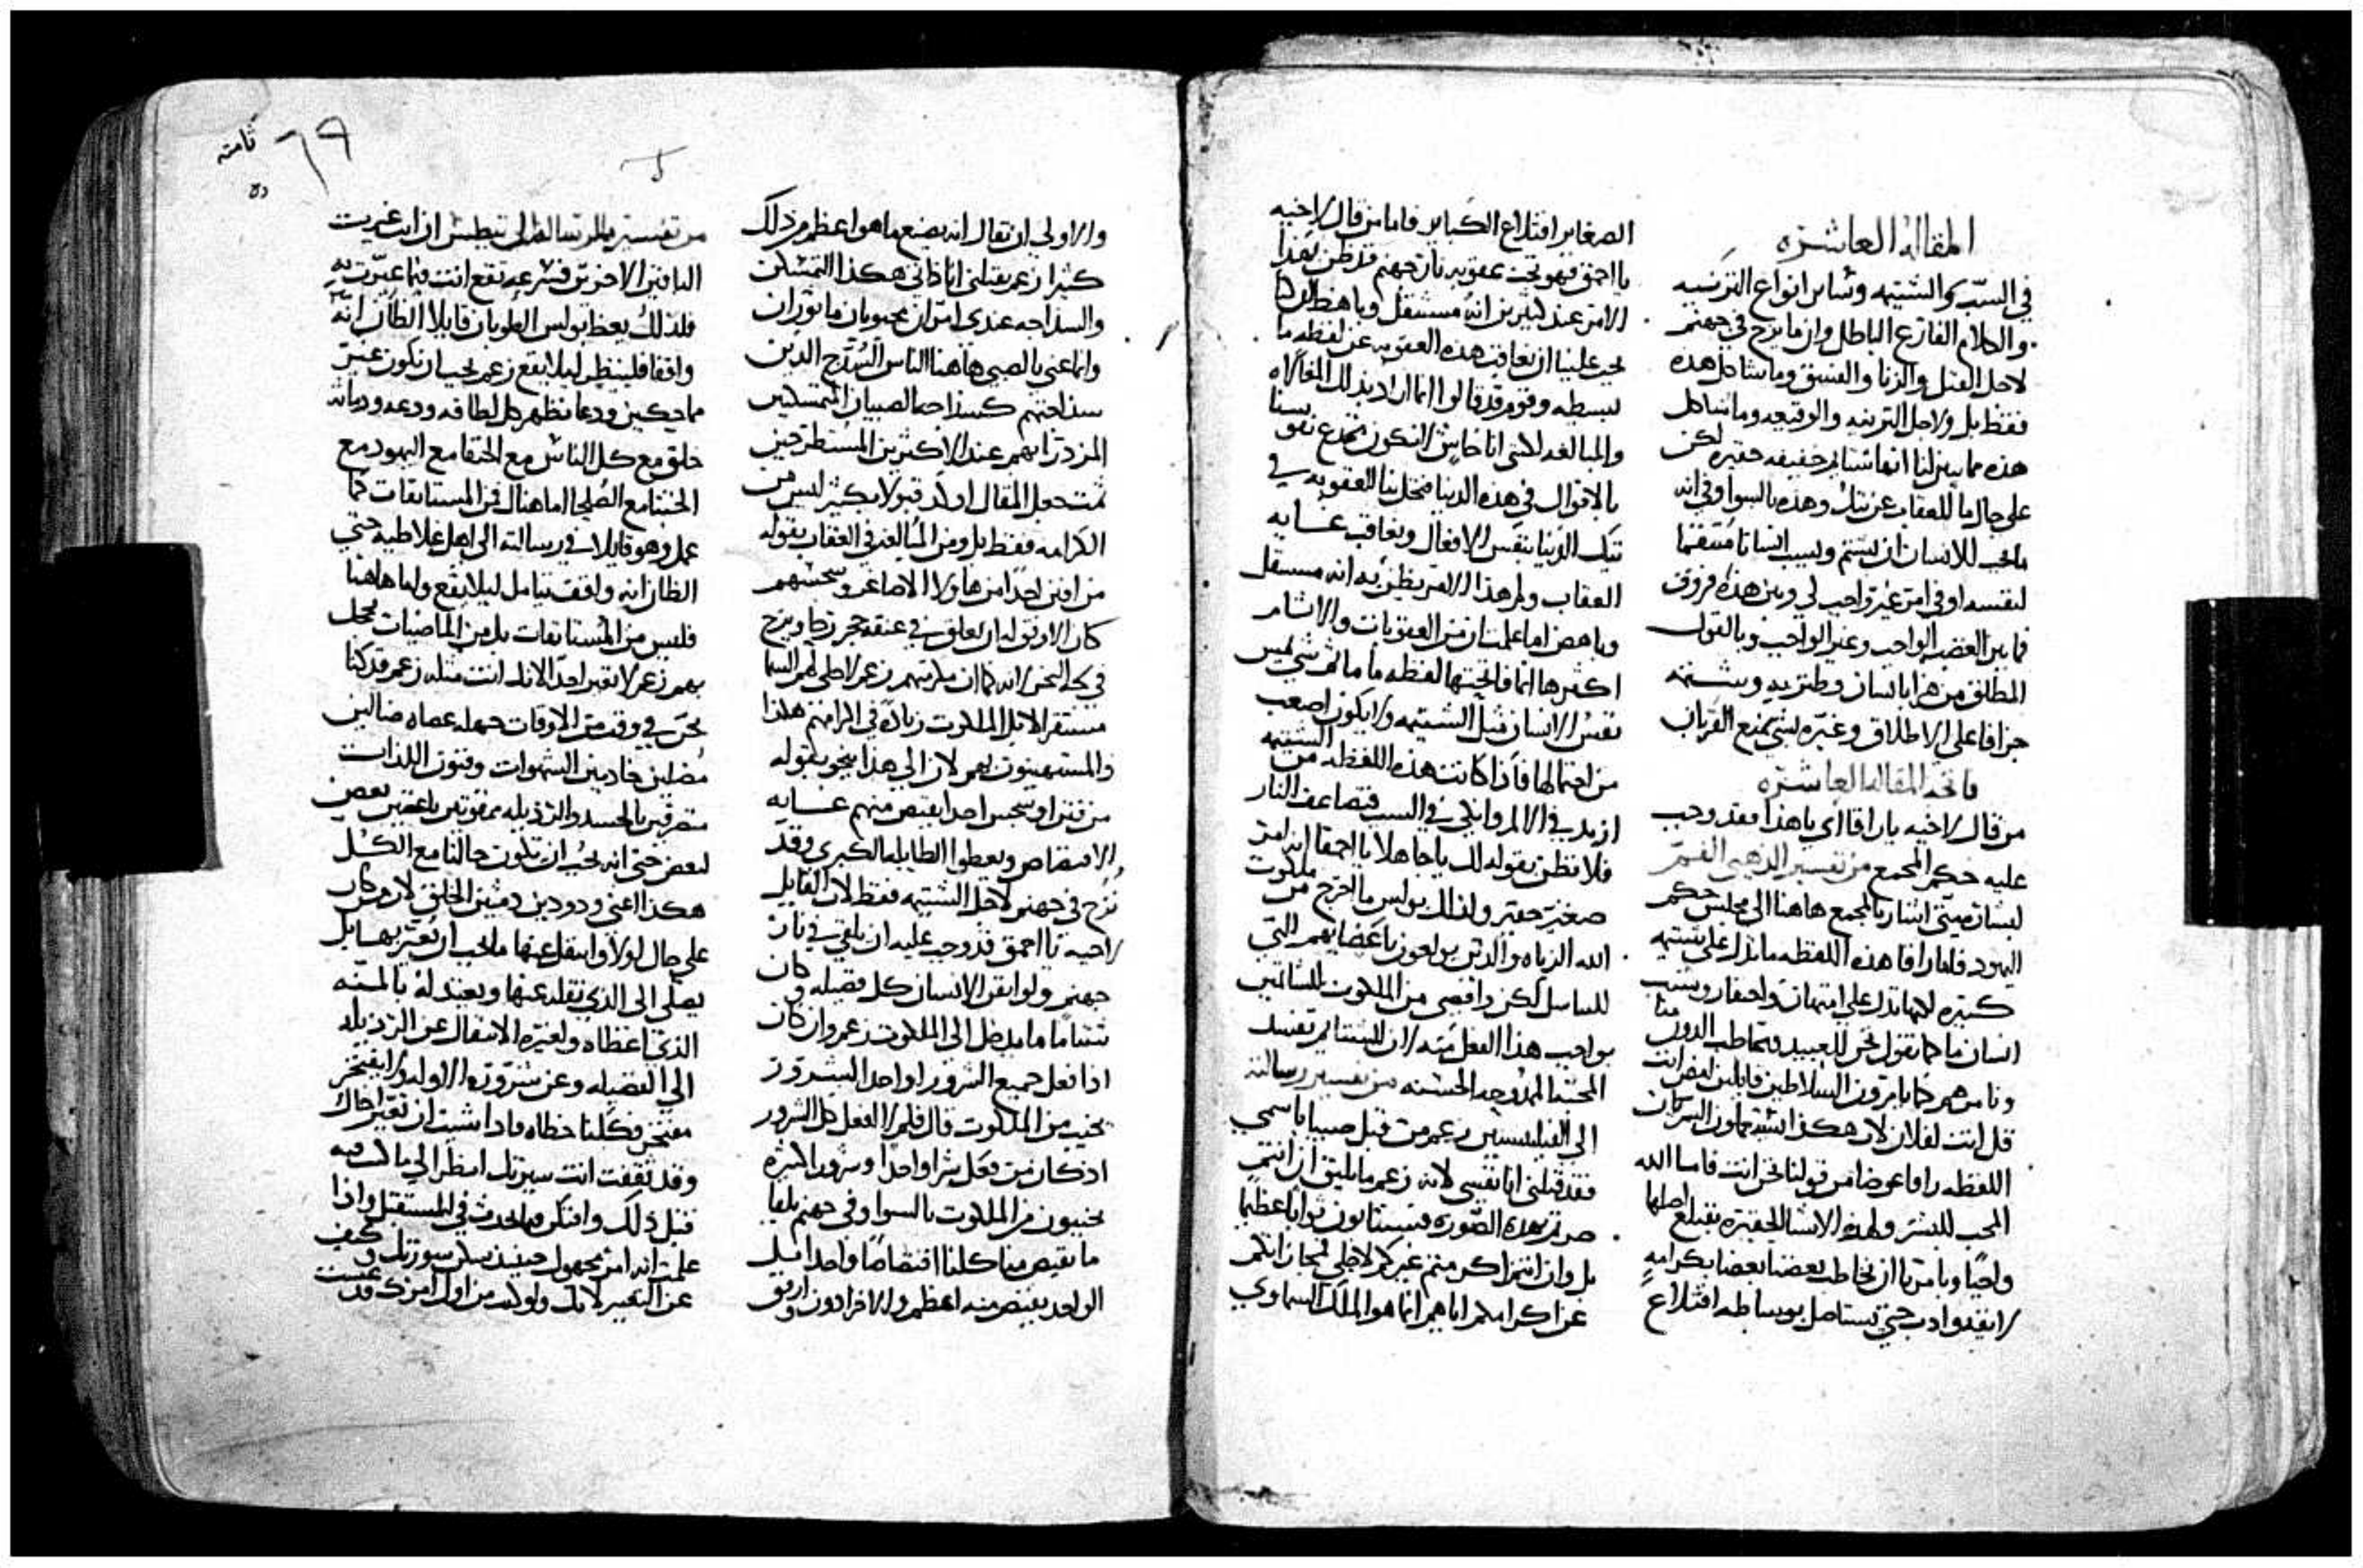 المقاله العاشره
في السب والشتيمه وساير انواع
والكلام الفارغ الباطل وان ما يزج في جهنم
لاجل القتل والزنا والفسق وما شاكل هذه
فقط بل ولاجل والوقيعه وما شاكل
هذه مما يبين لنا انها اشيا خفيفه حقيره لكن
على حال ما للعقاب عن تيك وهذه بالسوا وفي انه
ما يجب للانسان ان يشتم ويسب انسانا منتقما
لنفسه او في امر غير واجب لي وبين هذه فروق
فما بين الغضب الواجب وغير الواجب وبالقول
المطلق من هزا بانسان وشتمه
جزافا على الاطلاق وغيره شي يمنع القربان
فاتحه المقاله العاشره
من قال لاخيه يا راقا اي يا هذا فقد وجب
عليه حكم المجمع من تفسير الذهبي الفم
لبشاره متى اشار بالمجمع هاهنا الى مجلس حكم
اليهود فاما راقا هذه اللفظه ما تدل على شتيمه
كبيره لكنها تدل على امتهان واحتقار وتسب
انسان ما كما نقول نحن للعبيد ونخاطب الدون منا
ونامرهم كما يامرون السلاطين قايلين امض انت
قل انت لفلان لان هكذا يستعملون السريان
اللفظه راقا عوضا من قولنا نحن انت فاما الله
المحب للبشر ولهذه الاشيا الحقيره يقتلع اصلها
واجبا ويامرنا ان نخاطب بعضنا بعضا بكرامه
حتى يستاصل بوساطه اقتلاع
الصغاير اقتلاع الكباير فاما من قال لاخيه
يا احمق فهو تحت عقوبه نار جهنم قد ظن بهذا
الامر عند كثيرين انه مستثقل وباهظ
يجب علينا ان نعاقب هذه العقوبه عن لفظه ما
بسيطه وقوم قد قالوا انما اراد بذلك
والمبالغه لكني انا خايف الا نكون نخدع نفوسنا
بالاقوال في هذه الدنيا فتحل بنا العقوبه في
تيك الدنيا بنفس الافعال ونعاقب غايه
العقاب ولم هذا الامر يظن به انه مستثقل
وباهض اما علمت ان من العقوبات والاثام
اكثرها انما فاتحتها لفظه ما ما ثم شي يمس
نفس الانسان مثل الشتيمه ولا يكون اصعب
من احتمالها فاذا كانت هذه اللفظه من الشتيمه
ازيد في الالم وانكى في السب فتضاعف النار
فلا تظن بقولك يا جاهلا يا احمقا انه امر
صغير حقير ولذلك بولس ما اخرج من ملكوت
الله الزناه والذين يولعون باعضايهم التي
للتناسل لكن واقصى من الملكوت للشاتمين
بواجب هذا الفعل منه لان الشتايم تفسد
المحبه الممدوحه الحسنه من تفسير رسالته
الى زعم من قبل صبيا باسمي
فقد قبلني انا نفسي لانه زعم ما يليق ان انتم
صرتم بهذه الصوره فستنالون ثوابا عظيما
بل وان انتم اكرمتم غيركم لاجلي لمجازاتكم
عن اكرامكم اياهم انما هو الملك السماوي
٦٩
ثامنه
والاولى ان يقال انه يضع ما هو اعظم من ذلك
كثيرا زعم يقبلني انا ذاتي هكذا التمسكن
والسذاجه عندي امران محبوبان ماثوران
وانما عني بالصبي هاهنا الناس السذج الذين
سذاجتهم كسذاجه الصبيان المتمسكنين
المزدرا بهم عند الاكثرين المستطرحين
ثمت جعل المقال اولا قبولا بكثير ليس من
الكرامه فقط بل ومن المبالغه في العقاب بقوله
من افتن احدا من هاولا الاصاغر وسجسهم
كان الاوفق له ان يعلق في عنقه حجر رحا ويزج
في لجه البحر لانه كما ان مكرمينهم زعم لاجلي لهم السما
مستقرا لا بل الملكوت زياده في اكرامهم هكذا
والمستهينون بهم لان الى هذا ينحو بقوله
من فتن او سجس احدا يقتص منهم غايه
الاقتصاص ويعطوا الطايله الكبرى وقد
نزج في جهنم لاجل الشتيمه فقط لان القايل
لاخيه يا احمق قد وجب عليه ان يلقى في نار
جهنم ولو اتقن الانسان كل فضيله وكان
شتاما ما يدخل الى الملكوت زعم وان كان
اذا فعل جميع الشرور او واحدا
يخيب من الملكوت قال فلم لا افعل كل الشرور
اذ كان من فعل شرا واحدا وشرورا كثيره
يخيبون من الملكوت بالسوا وفي جهنم يلقا
ما يقتص منا كلنا اقتصاصا واحدا قبل
الواحد يقتص منه اعظم والاخر ادون وارفق
من تفسيره الرساله الى تيطس ان انت عيرت
الباقين الاخرين فبسرعه تقع انت فيما عيرت به
فلذلك يعظ بولس الطوبان قايلا الظان انه
واقفا فلينظر ليلا يقع زعم يجب ان نكون غير
مماحكين ودعا نظهر كل لطافه ودعه ودماثه
خلق مع كل الناس مع الحنفا مع اليهود مع
الخبثا مع الصلحا اما هناك فمن المستانفات كما
عمل وهو قايلا في رسالته الى اهل غلاطيه حتى
الظان انه واقف يتامل ليلا يقع واما هاهنا
فليس من المستانفات بل من الماضيات يخجل
بهم زعم لا تعير احدا لانك انت مثله زعم قد كنا
نحن في وقت من الاوقات جهله عصاه ضالين
مضلين خادمين الشهوات وفنون اللذات
متصرفين بالحسد والرذيله ممقوتين باغضين بعض
لبعض حتى انه يجب ان تكون حالنا مع الكل
هكذا اعني ودودين دمثين الخلق لان من كان
على حال اولا وانتقل عنها ما يجب ان يعير بها بل
يصلي الى الذي نقله عنها ويعتد له بالمنه
الذي اعطاه ولغيره الانتقال عن الرذيله
الى الفضيله وعن شروره الاوله ولا يفتخر
مفتخر فكلنا خطاه فاذا شيت ان تعير اخاك
وقد ثقفت انت سيرتك انظر الى ما كنت فيه
قبل ذلك وافتكر فيما يحدث في المستقبل واذا
علمت انه امر مجهول حينيذ سورتك وكف
عن التعيير لانك ولو كنت من اول امرك قد عشت